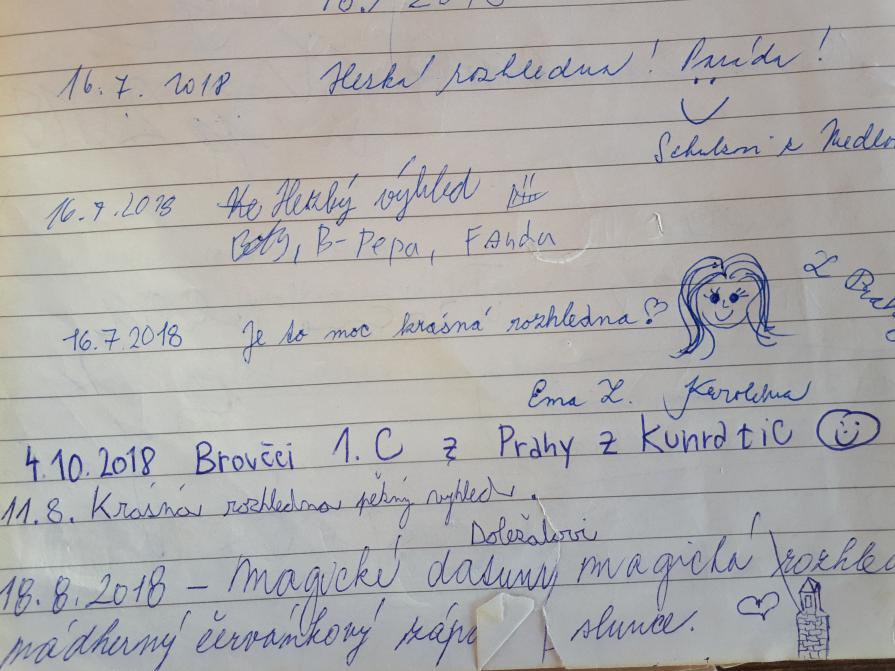 16.7.2018
16.7. 2018 Hezká rozhledna! Paráda!
Schulzovi z
16.7.2018 Hezký výhled !!!
Bob, B-Pepa, Fanda
16.7.2018 Je to moc krásná rozhledna!
Z
Ema Z. Karolína
4.10.2018 Broučci 1.C z Prahy z Kunratic
11.8. Krásná rozhledna pěkný výhled.
Doležalovi
18.8.2018 - magické datumy magická rozhled
nádherný červánkový záp slunce.